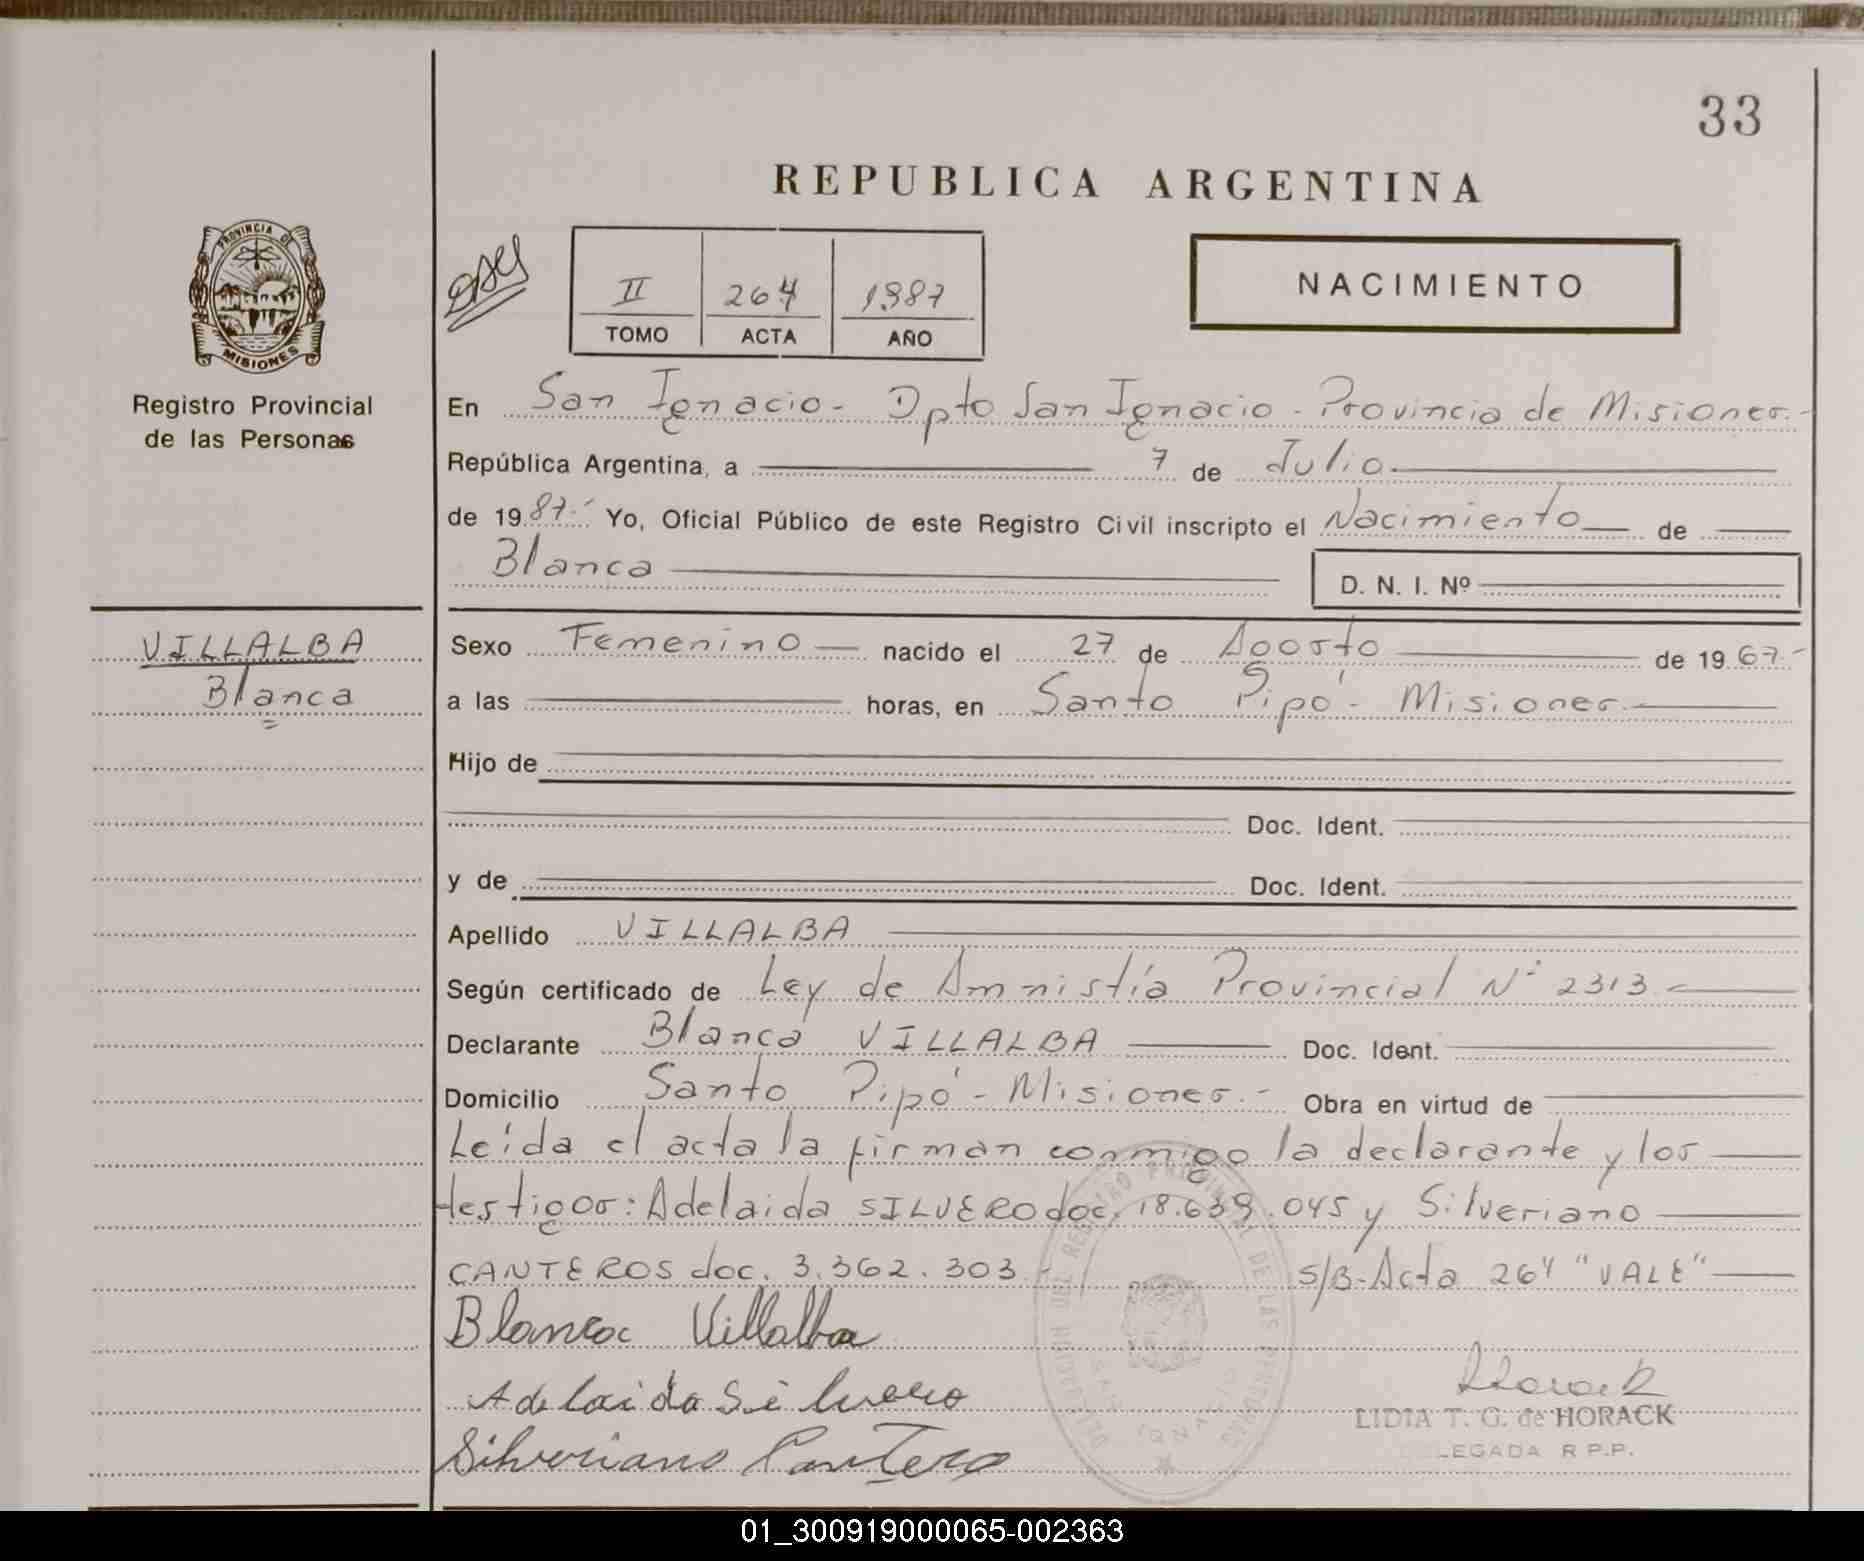 33
REPUBLICA ARGENTINA
PROVINCIA DE
MISIONES
Registro Provincial
de las Personas
II 264 1987
TOMO ACTA AÑO
NACIMIENTO
En San Ignacio - Dpto San Ignacio - Provincia de Misiones.-
República Argentina, a 7 de Julio
de 1987.- Yo, Oficial Público de este Registro Civil inscripto el Nacimiento de
Blanca D. N. I. Nº
VILLALBA
Blanca
Sexo Femenino nacido el 27 de Agosto de 1967.-
a las horas, en Santo Pipó - Misiones.
Hijo de
Doc. Ident.
y de Doc. Ident.
Apellido VILLALBA
Según certificado de Ley de Amnistía Provincial Nº 2313.-
Declarante Blanca VILLALBA Doc. Ident.
Domicilio Santo Pipó - Misiones.- Obra en virtud de
Leída el acta la firman conmigo la declarante y los
testigos: Adelaida SILVERO doc. 18.639.045 y Silveriano
CANTEROS doc. 3.362.303.- S/B-Acta 264 "VALE"
Blanca Villalba
Adelaida Silvero
Silveriano Cantero
Horack
LIDIA T. G. de HORACK
DELEGADA R.P.P.
DELEGACION DEL REGISTRO PROVINCIAL DE LAS PERSONAS
SAN IGNACIO
01_300919000065-002363